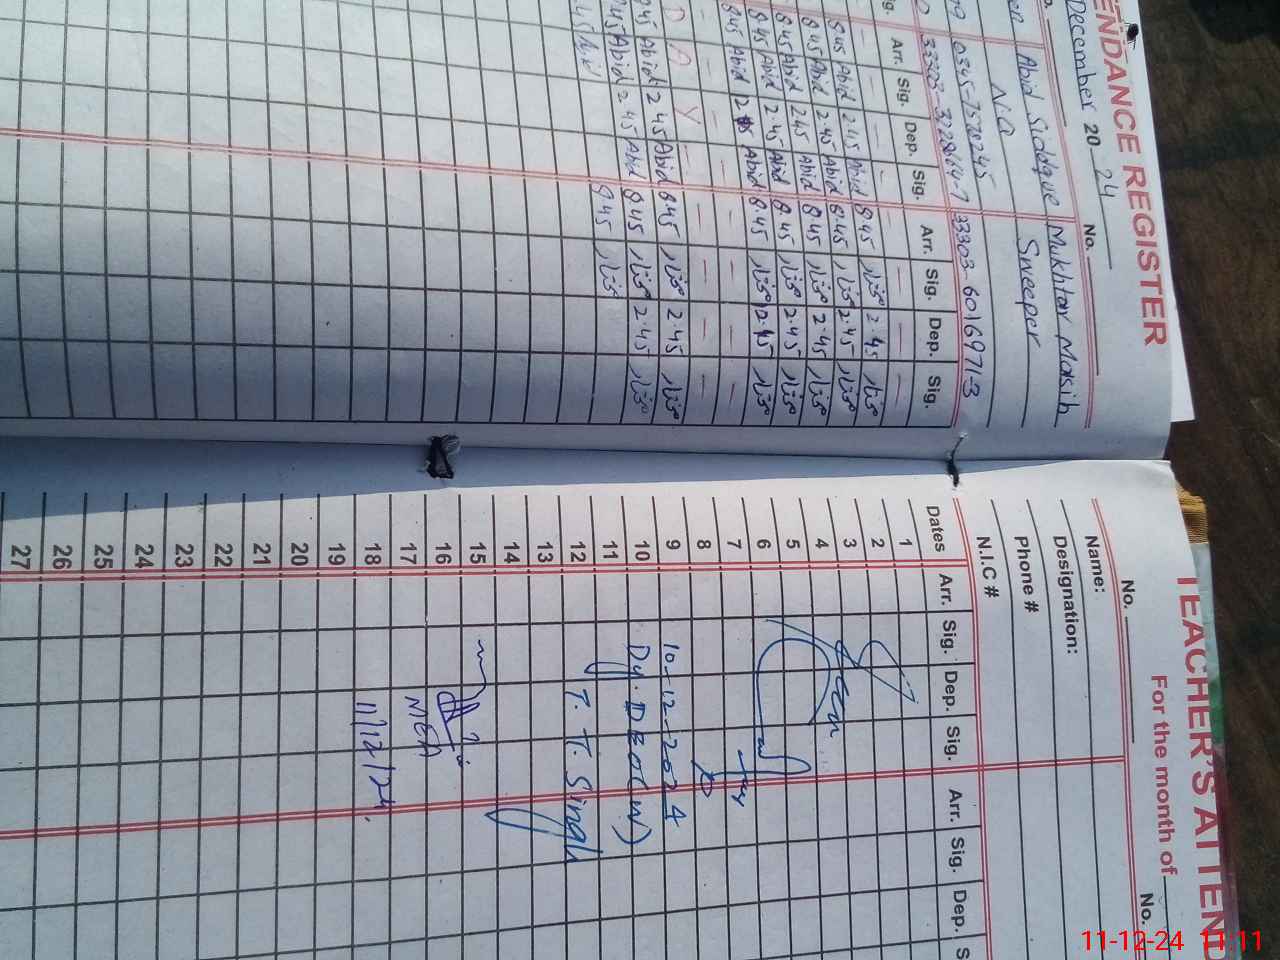 ENDANCE REGISTER
December 20 24
No.
No.
Abid Siddque Mukhtar Masih
N/Q Sweeper
0345-7578245
33303-3228614-7 33303-6016971-3
Arr. Sig. Dep. Sig. Arr. Sig. Dep. Sig.
— — — — — — — —
8.45 Abid 2.45 Abid 8.45 مختار 2.45 مختار
8.45 Abid 2.45 Abid 8.45 مختار 2.45 مختار
8.45 Abid 2.45 Abid 8.45 مختار 2.45 مختار
8.45 Abid 2.45 Abid 8.45 مختار 2.45 مختار
8.45 Abid 2.45 Abid 8.45 مختار 2.45 مختار
— — — — — — — —
D A Y — — — —
8.45 Abid 2.45 Abid 8.45 مختار 2.45 مختار
8.45 Abid 2.45 Abid 8.45 مختار 2.45 مختار
8.45 مختار
TEACHER'S ATTEND
For the month of
No.
No.
Name:
Designation:
Phone #
N.I.C #
Dates Arr. Sig. Dep. Sig. Arr. Sig. Dep. S
1
2
3
4
5
6
7
8
9 10-12-2024
10 Dy. DEO(W)
11
12 T. T. Singh
13
14
15
16
17
18 11/12/24.
19
20
21
22
23
24
25
26
27
11-12-24 11:11